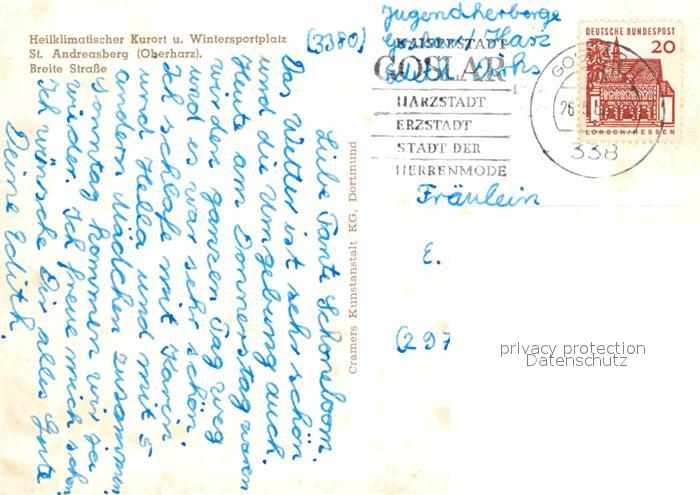 Heilklimatischer Kurort u. Wintersportplatz
St. Andreasberg (Oberharz).
Breite Straße
(3380)
Jugendherberge
Goslar / Harz
KAISERSTADT
GOSLAR
HARZSTADT
ERZSTADT
STADT DER
HERRENMODE
DEUTSCHE BUNDESPOST
20
LORSCH/HESSEN
GOSLAR
26.
338
Liebe Tante Schoneboom.
Das Wetter ist sehr schön
und die Umgebung auch.
Heute am Donnerstag waren
wir den ganzen Tag weg
und es war sehr schön.
Ich schlafe mit Karin
und Hella und mit 5
andern Mädchen zusammen.
Sonntag kommen wir ja
wieder. Ich freue mich schon.
Ich wünsche Dir alles Gute
Deine Edith.
Cramers Kunstanstalt KG, Dortmund
Fräulein
E.
(297
privacy protection
Datenschutz